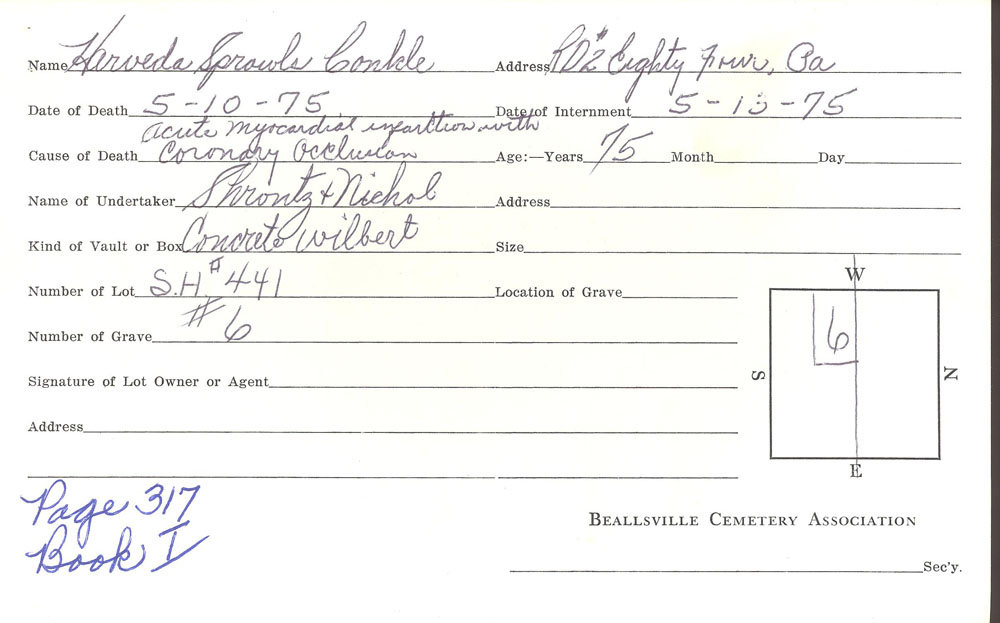 Name Harveda Sprowls Conkle Address RD#2 Eighty Four, Pa
Date of Death 5-10-75 Date of Internment 5-13-75
acute myocardial infarction with
Cause of Death Coronary Occlusion Age:—Years 75 Month Day
Name of Undertaker Shrontz & Nichol Address
Kind of Vault or Box Concrete Wilbert Size
Number of Lot S.H.# 441 Location of Grave
Number of Grave #6
Signature of Lot Owner or Agent
Address
W
6
S N
E
Page 317
Book I
Beallsville Cemetery Association
Sec'y.